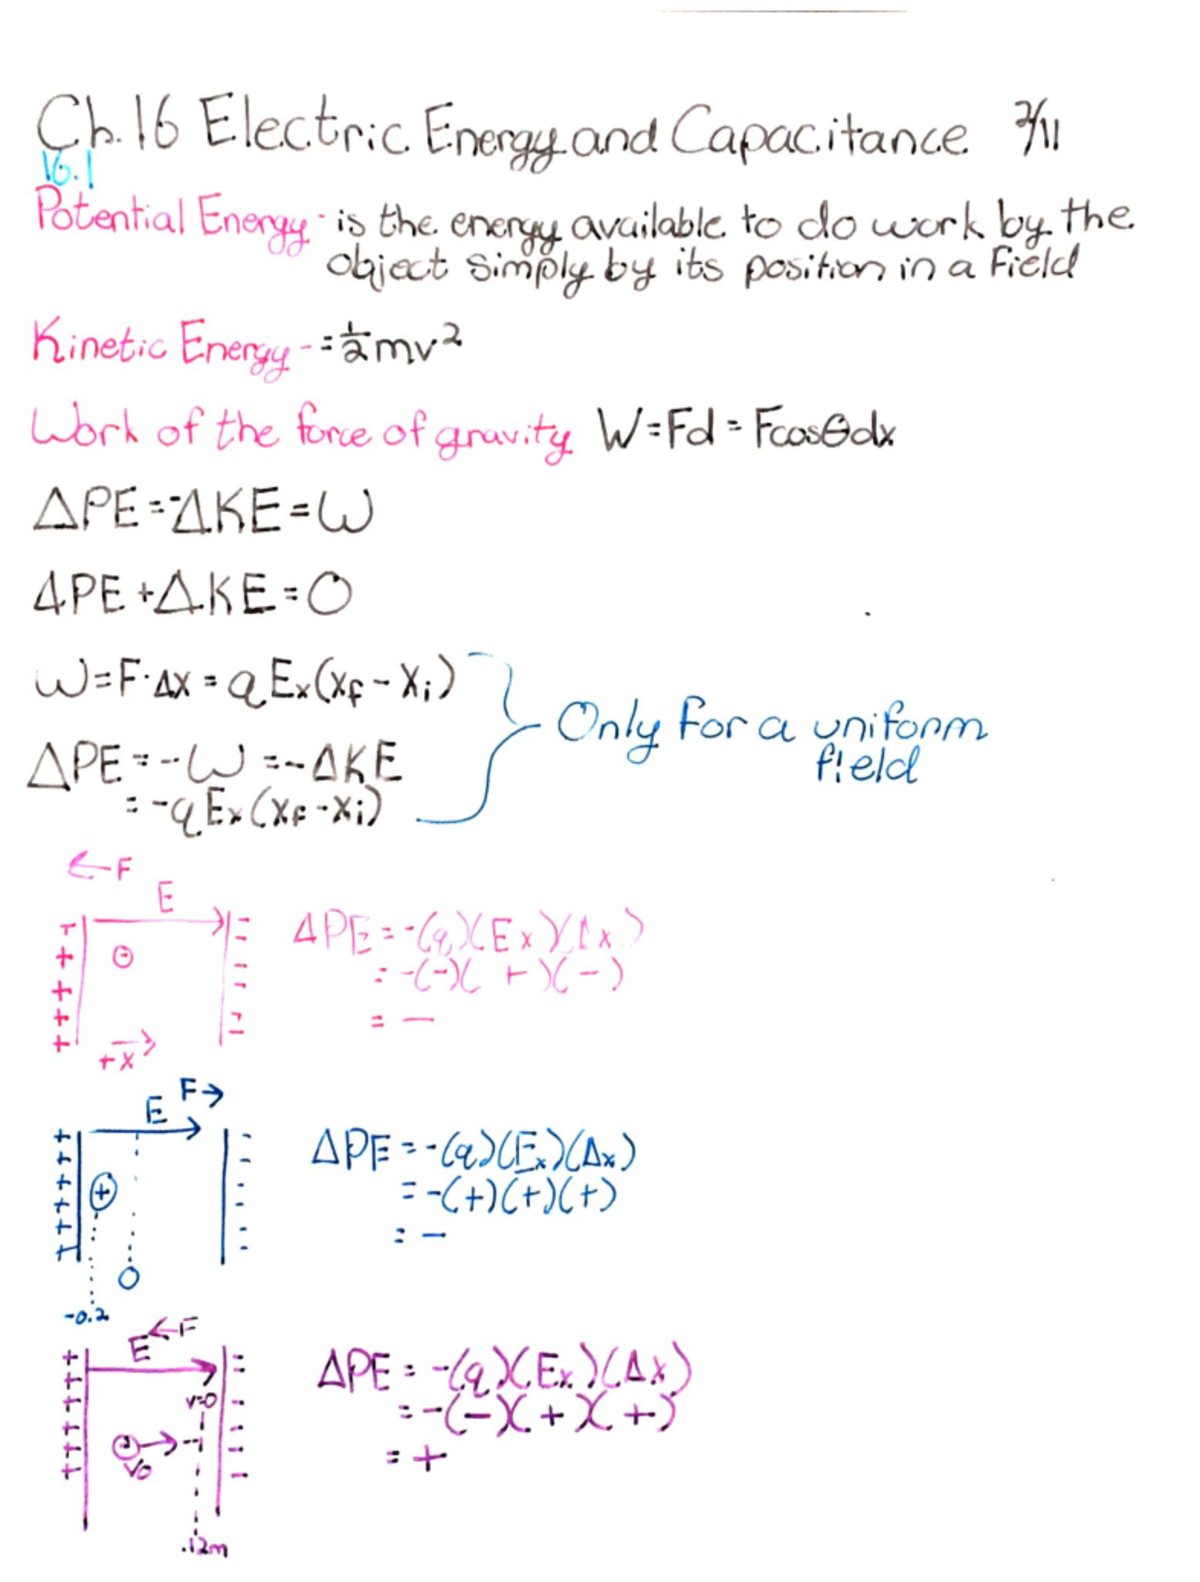 Ch.16 Electric Energy and Capacitance 2/11
16.1
Potential Energy - is the energy available to do work by the
object simply by its position in a field
Kinetic Energy - = 1/2 mv²
Work of the force of gravity W=Fd = Fcosθdx
ΔPE = -ΔKE = W
ΔPE + ΔKE = 0
W = F·Δx = qEx(xf - xi)
Only for a uniform
field
ΔPE = -W = -ΔKE
= -qEx(xf - xi)
←F
E
ΔPE = -(q)(Ex)(Δx)
= -(-)(+)(-)
= -
+x
E F→
ΔPE = -(q)(Ex)(Δx)
= -(+)(+)(+)
= -
0
-0.2
E ←F
ΔPE = -(q)(Ex)(Δx)
= -(-)(+)(+)
= +
v=0
v0
.12m